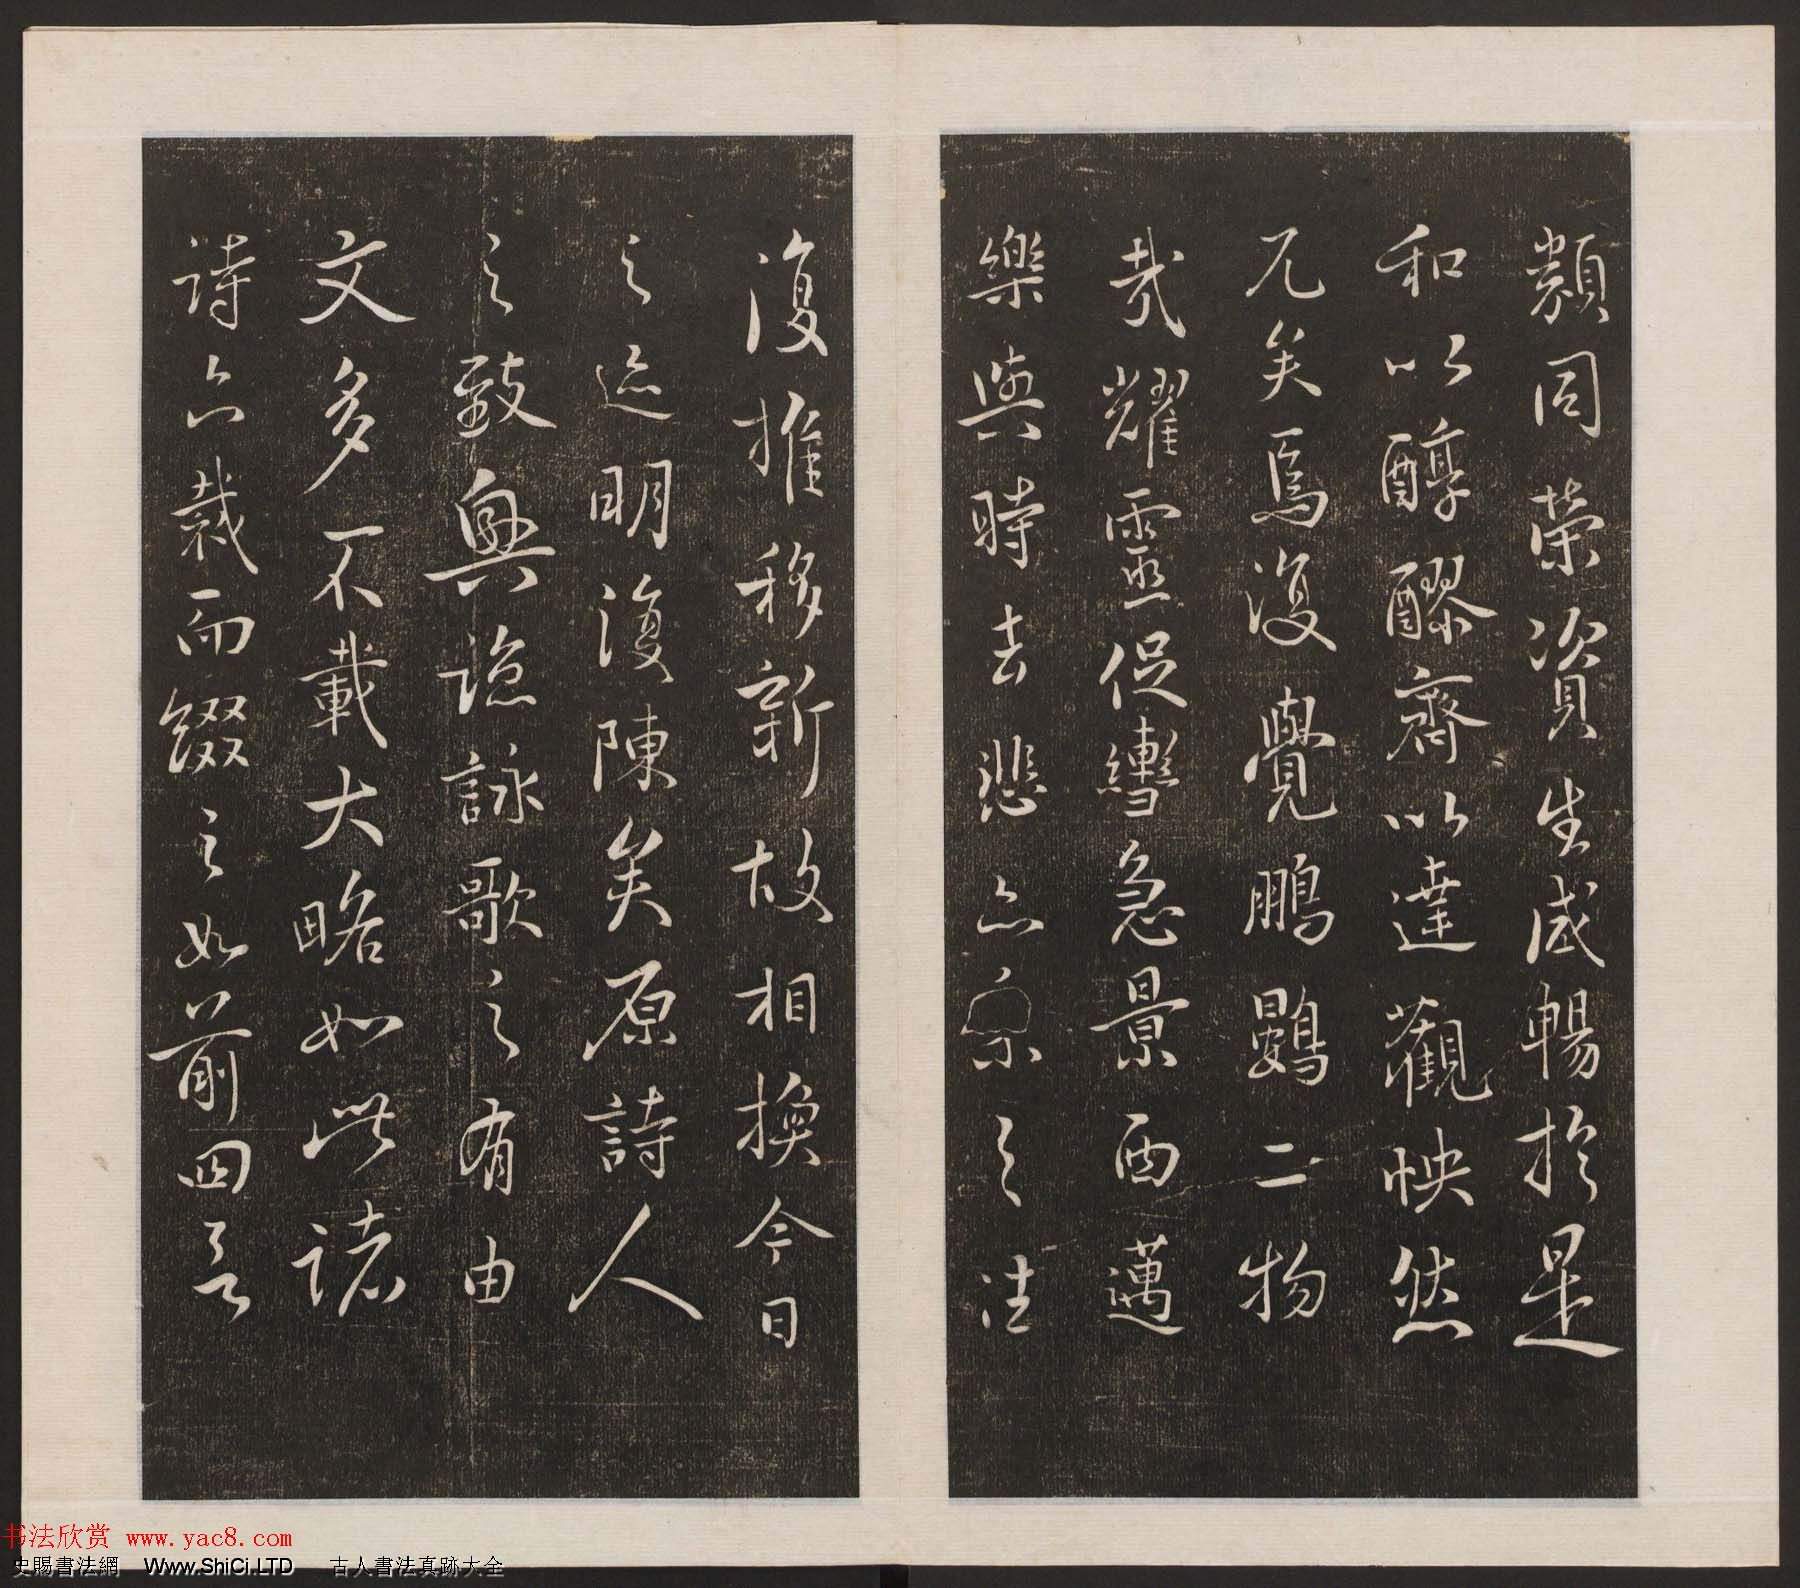 類同榮資生咸暢於是
和以醇醪齊以達觀怏然
兀矣焉復覺鵬鷃二物
哉耀靈促轡急景西邁
樂與時去悲亦系之往
復推移新故相換今日
之迹明復陳矣原詩人
之致興諒詠歌之有由
文多不載大略如此諸
詩亦裁而綴之如前四言
书法欣赏 www.yac8.com
史賜書法網 Www.ShiCi.LTD 古人書法真跡大全